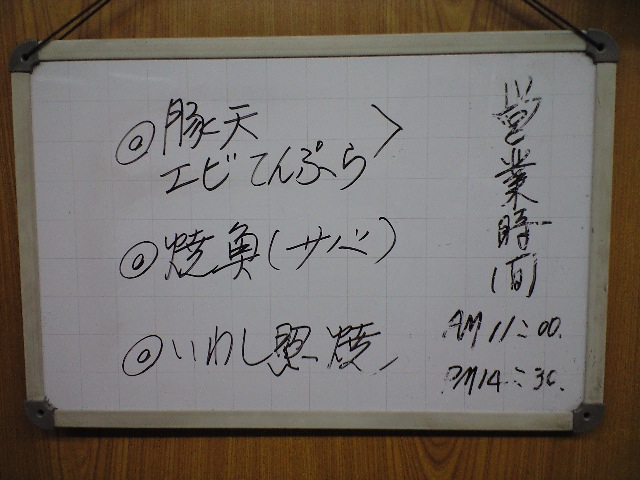 ◎豚天
エビてんぷら 〉
◎焼魚(サバ)
◎いわし照焼
営業時間
AM 11:00.
PM 14:30.